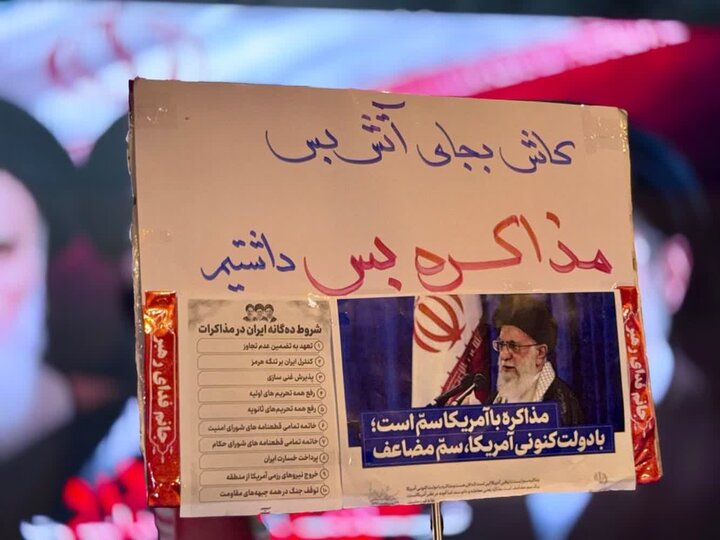 کاش بجای آتش بس
مذاکره بس داشتیم
شروط ده‌گانه ایران در مذاکرات
۱ تعهد به تضمین عدم تجاوز
۲ کنترل ایران بر تنگه هرمز
۳ پذیرش غنی سازی
۴ رفع همه تحریم های اولیه
۵ رفع همه تحریم‌های ثانویه
۶ خاتمه تمامی قطعنامه های شورای امنیت
۷ خاتمه تمامی قطعنامه های شورای حکام
۸ پرداخت خسارت ایران
۹ خروج نیروهای رزمی آمریکا از منطقه
۱۰ توقف جنگ در همه جبهه‌های مقاومت
مذاکره با آمریکا سمّ است؛
با دولت کنونی آمریکا، سمّ مضاعف
جانم فدای رهبر
جانم فدای رهبر